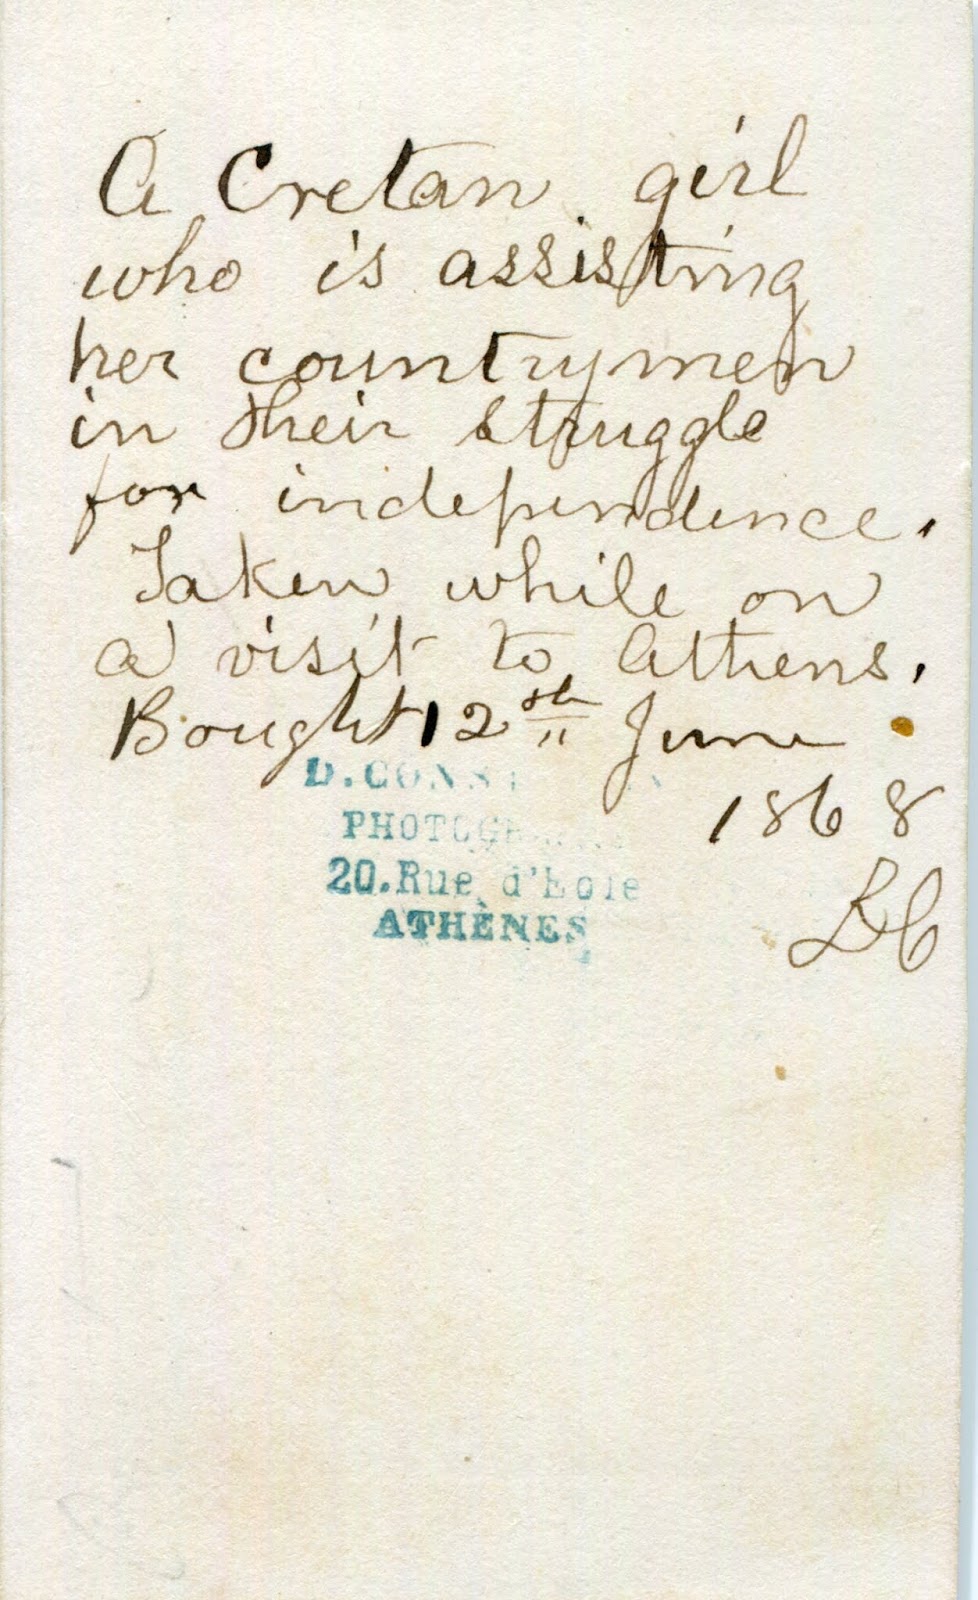 A Cretan girl
who is assisting
her countrymen
in their struggle
for independence.
Taken while on
a visit to Athens.
Bought 12th June
1868
D.
20. Rue d'Eole
ATHÈNES